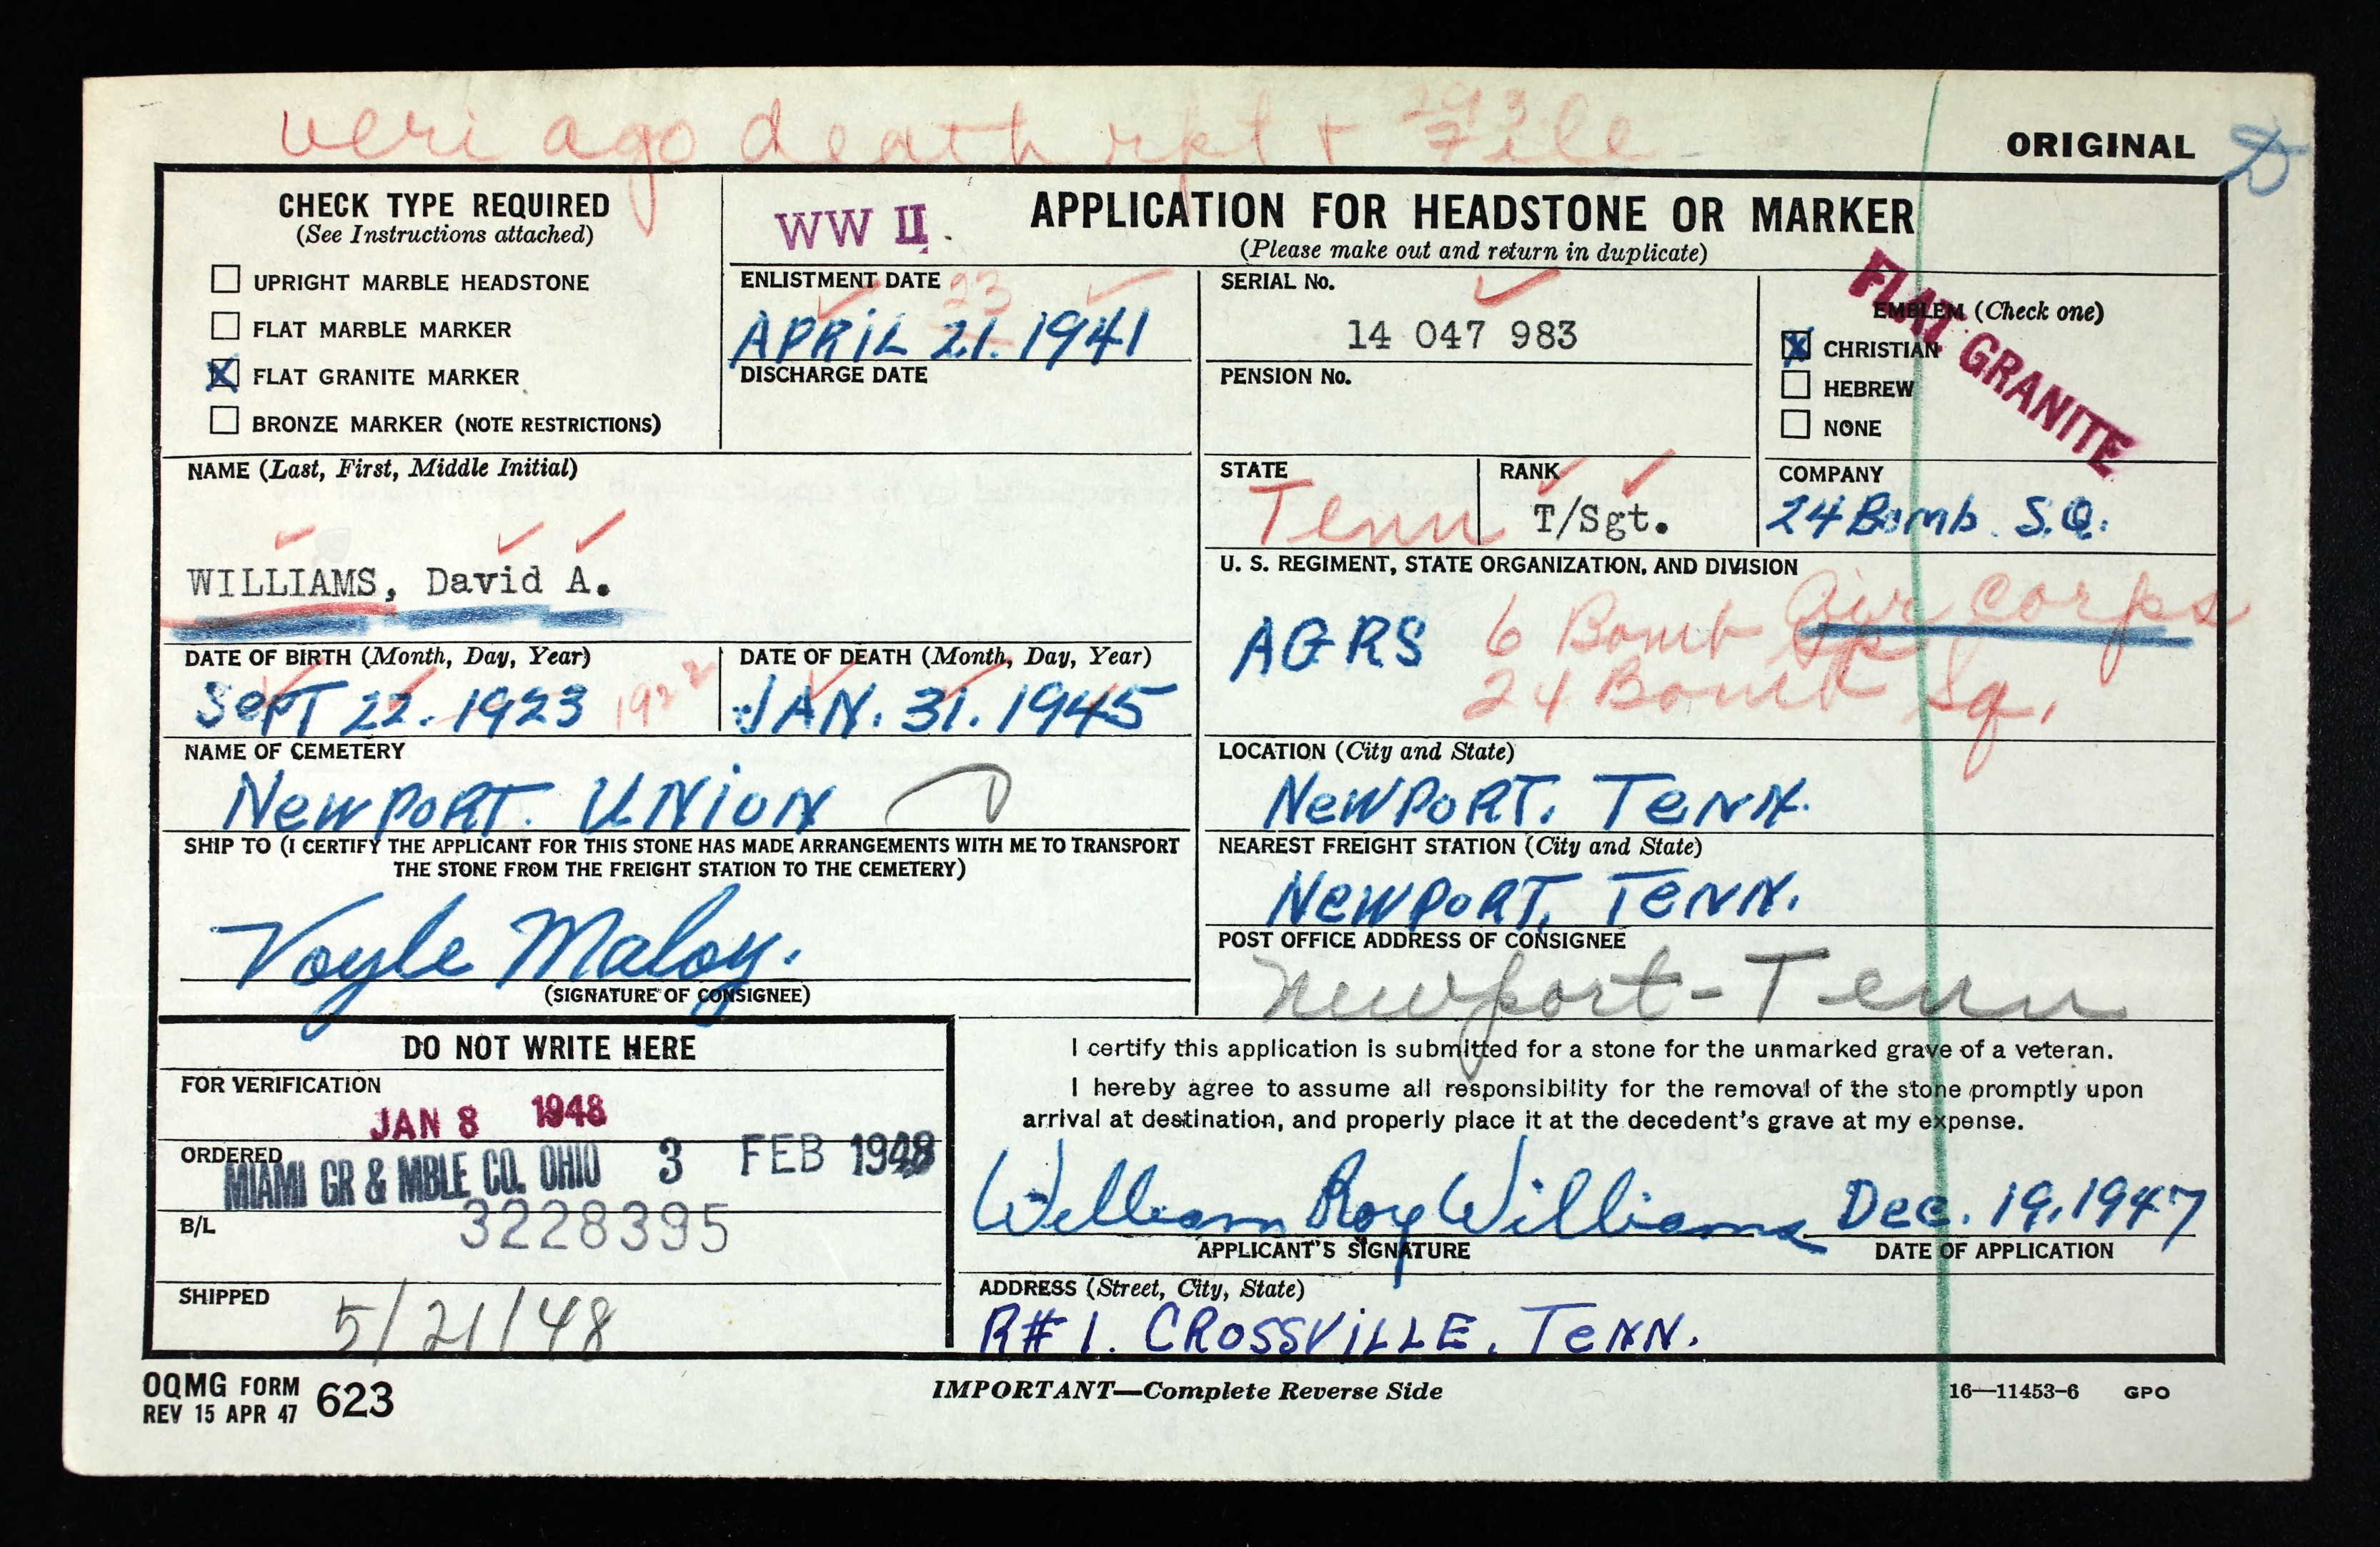 veri ago death rpt + 293 File
ORIGINAL
D
CHECK TYPE REQUIRED
(See Instructions attached)
UPRIGHT MARBLE HEADSTONE
FLAT MARBLE MARKER
X FLAT GRANITE MARKER
BRONZE MARKER (NOTE RESTRICTIONS)
WW II.
APPLICATION FOR HEADSTONE OR MARKER
(Please make out and return in duplicate)
ENLISTMENT DATE
23
APRiL 21. 1941
DISCHARGE DATE
SERIAL No.
14 047 983
PENSION No.
FLAT GRANITE
EMBLEM (Check one)
X CHRISTIAN
HEBREW
NONE
NAME (Last, First, Middle Initial)
WILLIAMS, David A.
STATE
Tenn
RANK
T/Sgt.
COMPANY
24 Bomb. S.Q.
U. S. REGIMENT, STATE ORGANIZATION, AND DIVISION
Air Corps
AGRS 6 Bomb Gp
24 Bomb Sq.
DATE OF BIRTH (Month, Day, Year)
SePT 22. 1923 1922
DATE OF DEATH (Month, Day, Year)
JAN. 31. 1945
NAME OF CEMETERY
NewPoRT. UNiON
LOCATION (City and State)
NeWPoRT. TeNN.
SHIP TO (I CERTIFY THE APPLICANT FOR THIS STONE HAS MADE ARRANGEMENTS WITH ME TO TRANSPORT
THE STONE FROM THE FREIGHT STATION TO THE CEMETERY)
Voyle Maloy.
(SIGNATURE OF CONSIGNEE)
NEAREST FREIGHT STATION (City and State)
NeWPoRT, TeNN.
POST OFFICE ADDRESS OF CONSIGNEE
Newport-Tenn
DO NOT WRITE HERE
FOR VERIFICATION
JAN 8 1948
ORDERED
MIAMI GR & MBLE CO. OHIO 3 FEB 1948
B/L
3228395
SHIPPED
5/21/48
I certify this application is submitted for a stone for the unmarked grave of a veteran.
I hereby agree to assume all responsibility for the removal of the stone promptly upon
arrival at destination, and properly place it at the decedent's grave at my expense.
William Roy Williams Dec. 19, 1947
APPLICANT'S SIGNATURE
DATE OF APPLICATION
ADDRESS (Street, City, State)
R# 1. CROSSViLLE. TeNN.
OQMG FORM 623
REV 15 APR 47
IMPORTANT—Complete Reverse Side
16—11453-6 GPO